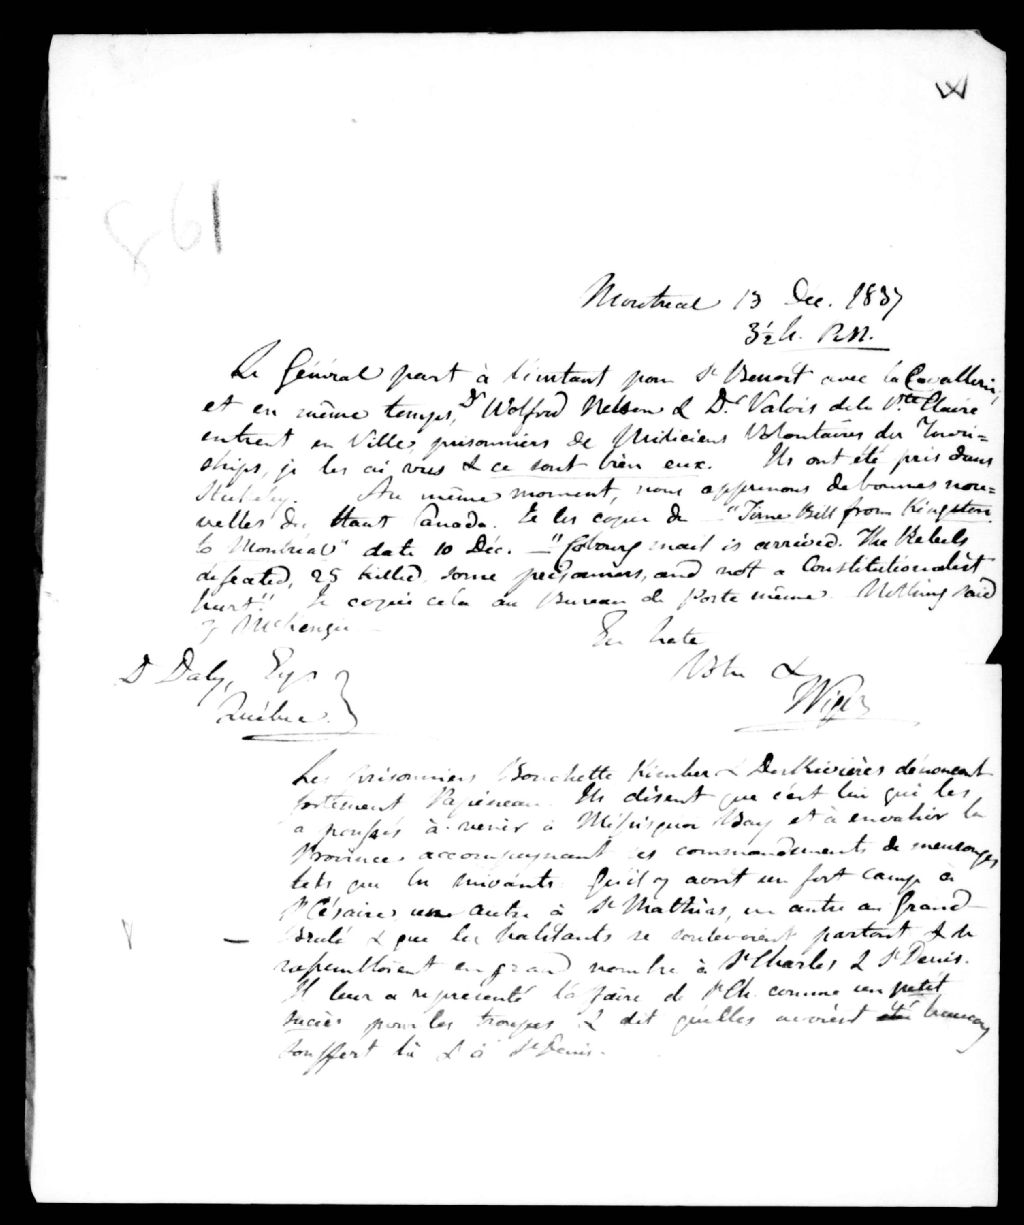 W
861
Montreal 13 Déc. 1837
3½ h. P.M.
Le Général part à l'instant pour St Benoit avec la Cavallerie,
et en même temps, Dr Wolford Nelson & Dr Valois de la Pte Claire
entrent en Ville, prisonniers de Miliciens Volontaires des Town=
ships, je les ai vus & ce sont bien eux. Ils ont été pris dans
Stukely. Au même moment, nous apprenons de bonnes nou=
velles du Haut Canada. Je les copie du — "Time Bill from Kingston
to Montréal" date 10 Déc. — "Cobourg mail is arrived. The Rebels
defeated, 25 killed, some prisoners, and not a Constitutionalist
hurt". Je copie cela au Bureau de Poste même. Nothing said
of McKenzie —
En hate
D Daly, Esqr
Québec.
Les prisonniers Bouchette Kimber & DesRivières dénoncent
fortement Papineau. Ils disent que c'est lui qui les
a poussés à venir à Missisquoi Bay et à envahir la
Province accompagnant ses commandements de mensonges
tels que les suivants. Qu'il y avoit un fort camp à
St Césaire un autre à St Mathias, un autre au Grand
Brulé & que les habitants se soulevoient partout & se
rassembloient en grand nombre à St Charles & St Denis.
Il leur a représenté l'affaire de St Ch. comme un petit
succès pour les troupes & dit qu'elles avoient été beaucoup
souffert là & à St Denis.